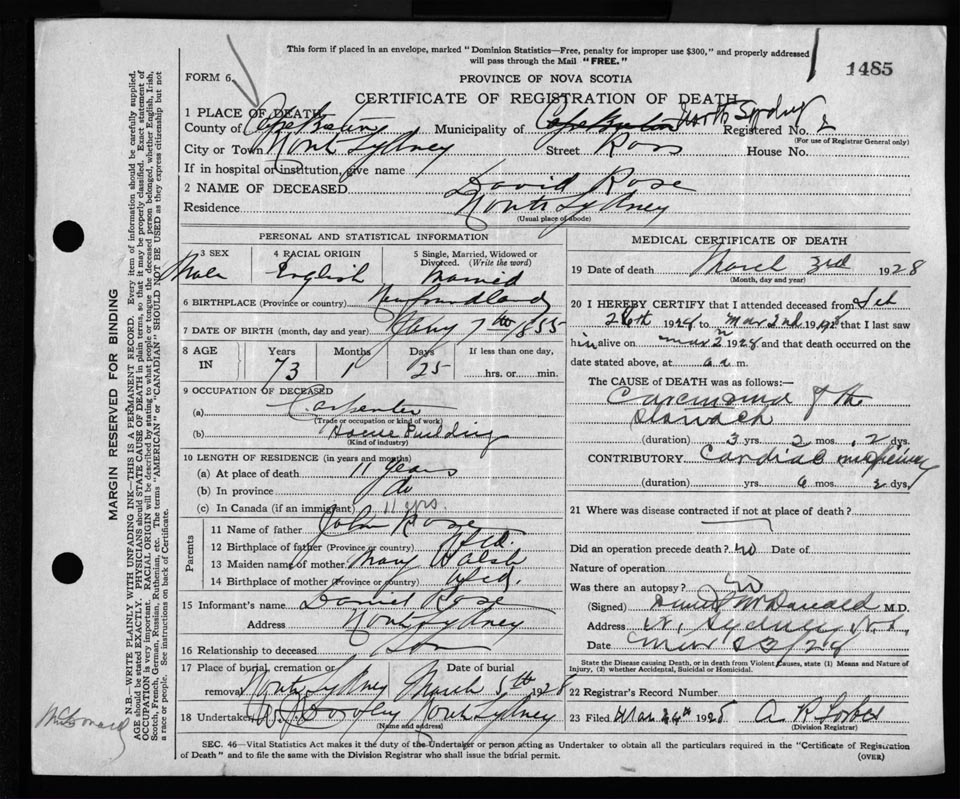 This form if placed in an envelope, marked "Dominion Statistics—Free, penalty for improper use $300," and properly addressed
will pass through the Mail "FREE."
FORM 6.
PROVINCE OF NOVA SCOTIA
1485
CERTIFICATE OF REGISTRATION OF DEATH
1 PLACE OF DEATH
North Sydney
County of Cape Breton Municipality of Cape Breton Registered No. 2
(For use of Registrar General only)
City or Town North Sydney Street Ross House No.
If in hospital or institution, give name
2 NAME OF DECEASED David Rose
Residence North Sydney
(Usual place of abode)
PERSONAL AND STATISTICAL INFORMATION
3 SEX Male
4 RACIAL ORIGIN English
5 Single, Married, Widowed or Divorced. (Write the word) Married
6 BIRTHPLACE (Province or country) Newfoundland
7 DATE OF BIRTH (month, day and year) Jany 7th 1855
8 AGE IN Years 73 Months 1 Days 25 If less than one day, hrs. or min.
9 OCCUPATION OF DECEASED
(a) Carpenter
(Trade or occupation or kind of work)
(b) House Building
(Kind of industry)
10 LENGTH OF RESIDENCE (in years and months)
(a) At place of death 11 years
(b) In province do
(c) In Canada (if an immigrant) 11 yrs.
Parents
11 Name of father John Rose
12 Birthplace of father (Province or country) Nfld.
13 Maiden name of mother Mary Walsh
14 Birthplace of mother (Province or country) Nfld.
15 Informant's name Daniel Rose
Address North Sydney
16 Relationship to deceased Son
17 Place of burial, cremation or removal North Sydney
Date of burial March 5th 1928
18 Undertaker North Sydney
(Name and address)
MEDICAL CERTIFICATE OF DEATH
19 Date of death March 3rd 1928
(Month, day and year)
20 I HEREBY CERTIFY that I attended deceased from
26th 1928 to Mar 2nd 1928 that I last saw
him alive on Mar 2 1928 and that death occurred on the
date stated above, at a.m.
The CAUSE OF DEATH was as follows:
Carcinoma of the
stomach
(duration) 3 yrs. 2 mos. 2 dys.
CONTRIBUTORY Cardiac
(duration) yrs. 6 mos. dys.
21 Where was disease contracted if not at place of death?
Did an operation precede death? no Date of
Nature of operation
Was there an autopsy? no
(Signed) McDonald M.D.
Address N. Sydney N.S.
Date
State the Disease causing Death, or in death from Violent Causes, state (1) Means and Nature of
Injury, (2) whether Accidental, Suicidal or Homicidal.
22 Registrar's Record Number
23 Filed Mar 1928 A R Forbes
(Division Registrar)
SEC. 46—Vital Statistics Act makes it the duty of the Undertaker or person acting as Undertaker to obtain all the particulars required in the "Certificate of Registration
of Death" and to file the same with the Division Registrar who shall issue the burial permit.
(OVER)
MARGIN RESERVED FOR BINDING
N.B.—WRITE PLAINLY WITH UNFADING INK—THIS IS A PERMANENT RECORD. Every item of information should be carefully supplied.
AGE should be stated EXACTLY. PHYSICIANS should STATE CAUSE OF DEATH in plain terms, so that it may be properly classified. Exact statement of
OCCUPATION is very important. RACIAL ORIGIN will be described by stating to what people or tongue the deceased person belonged, whether English, Irish,
Scotch, French, German, Russian, Ruthenian, etc. The terms "AMERICAN" or "CANADIAN" SHOULD NOT BE USED as they express citizenship but not
a race or people. See instructions on back of Certificate.
McDonald